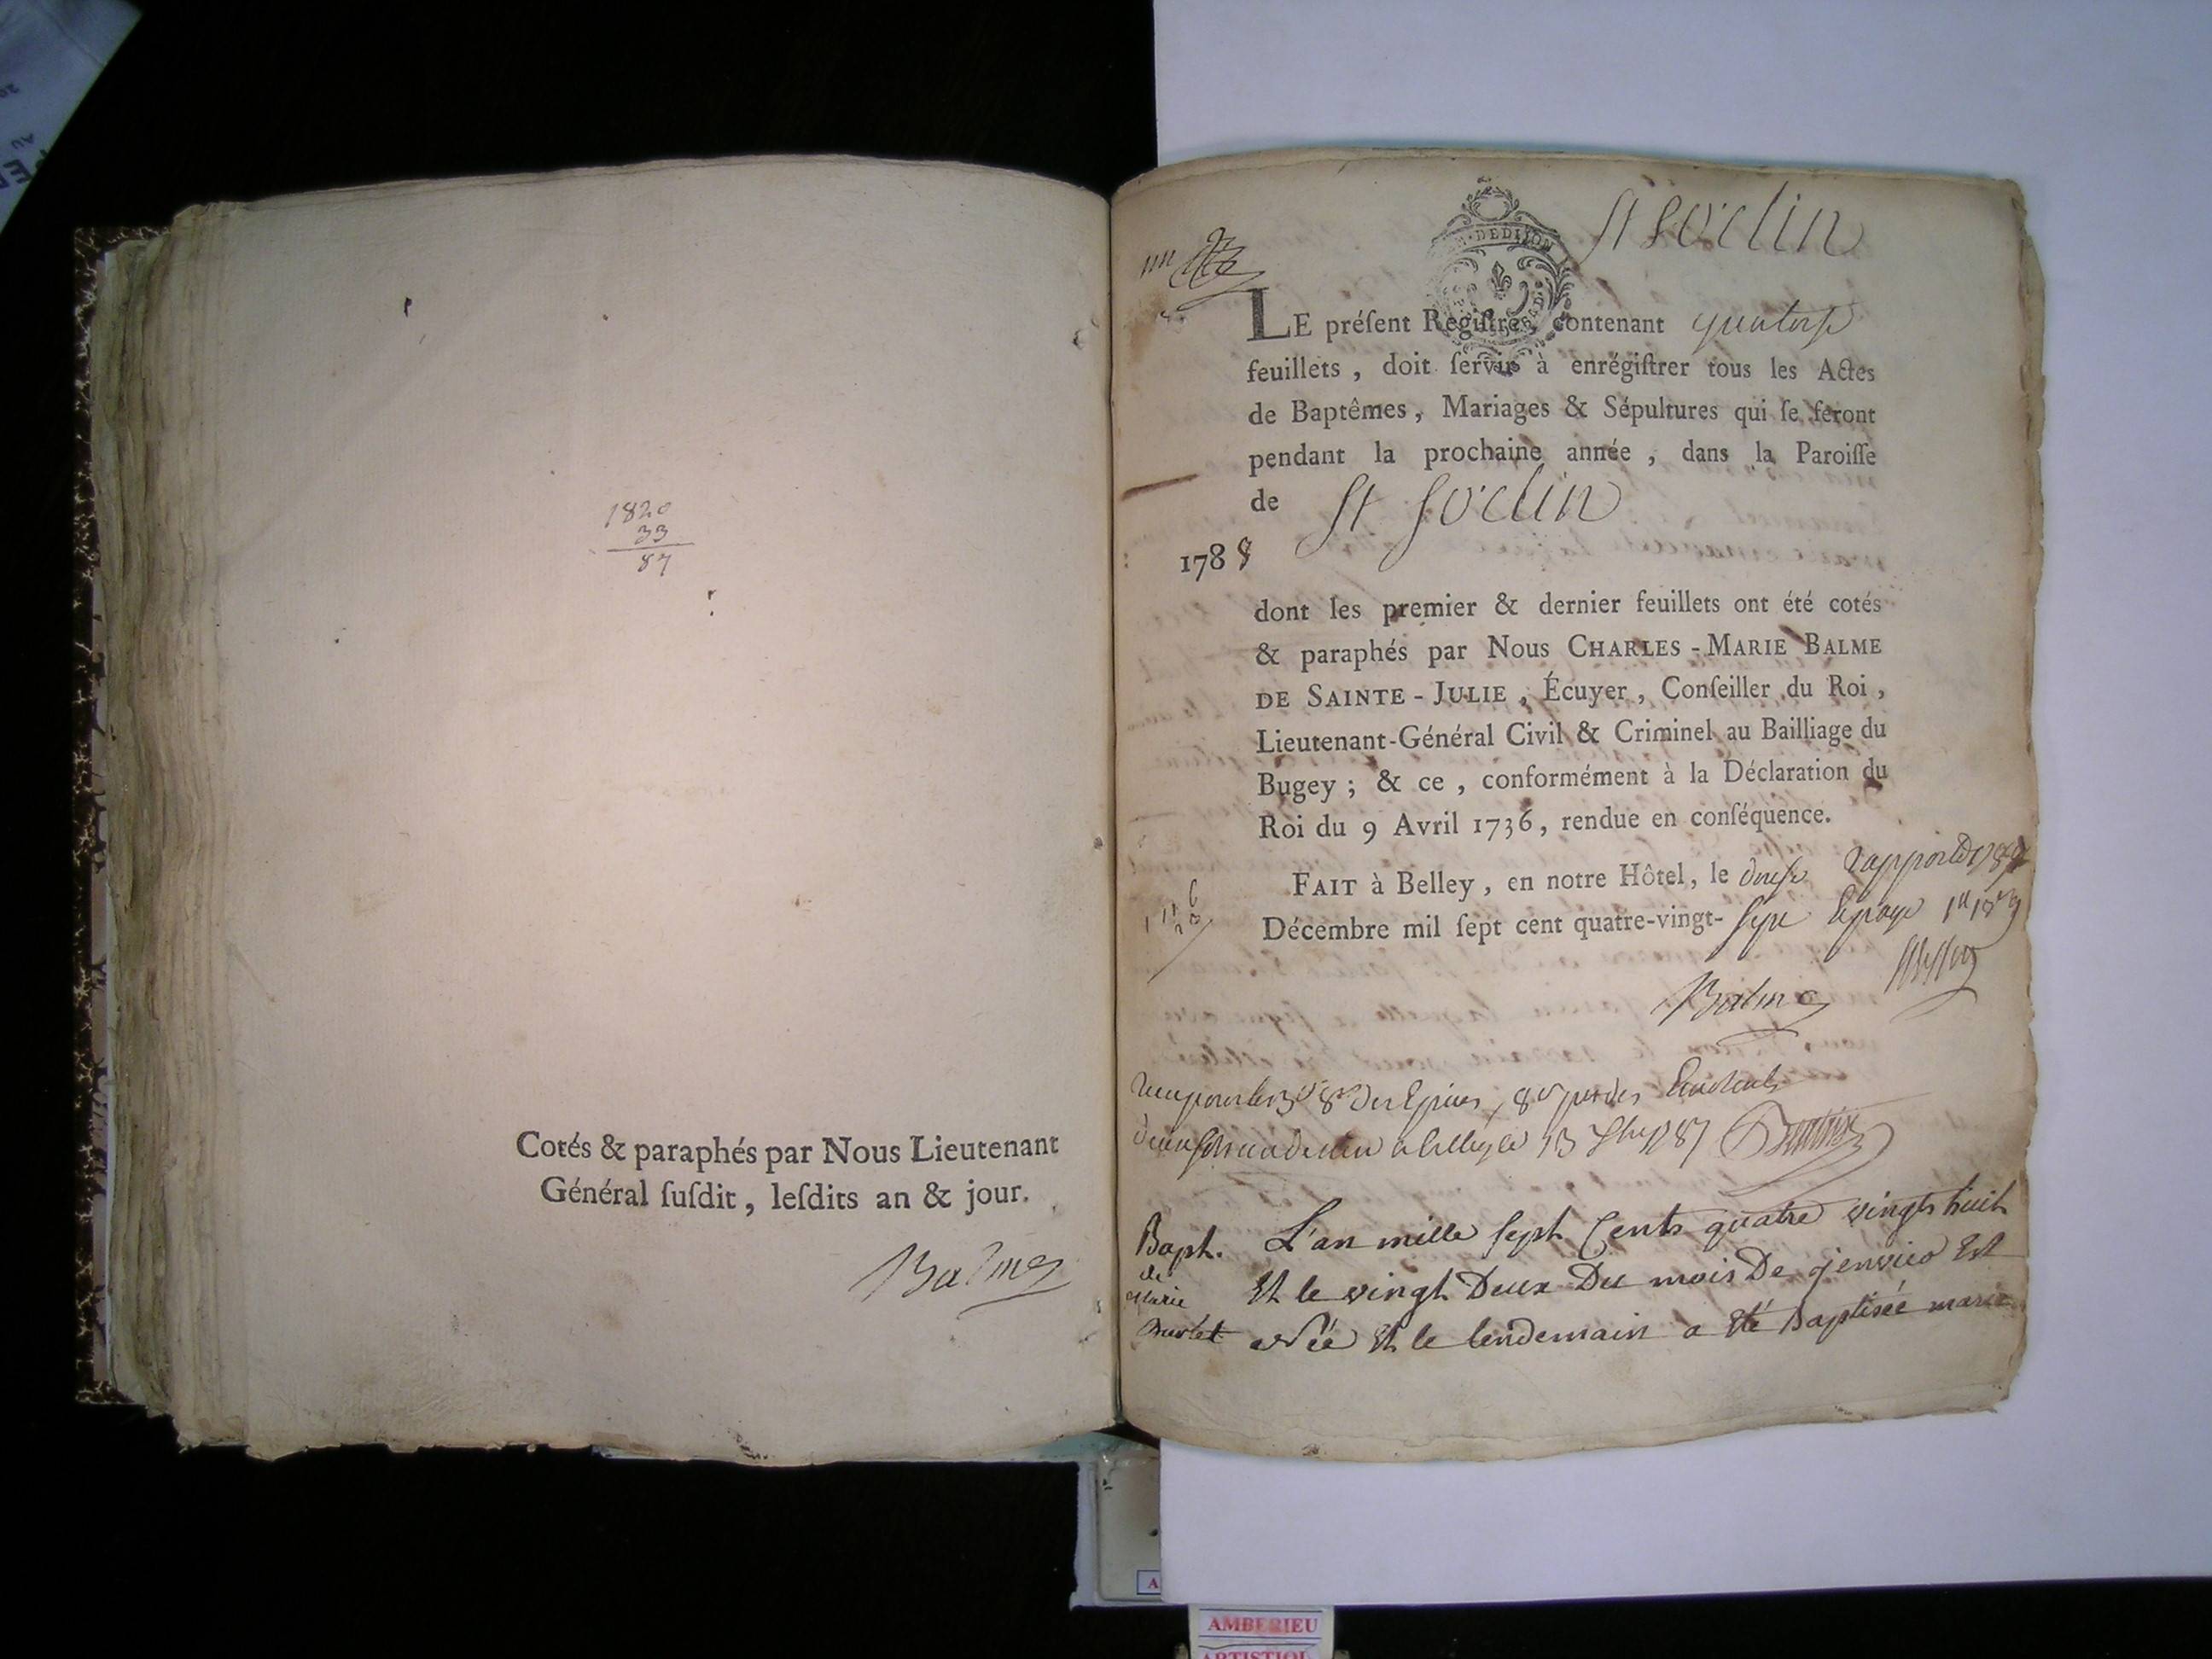 1820
33
87
Cotés & paraphés par Nous Lieutenant
Général ſuſdit, leſdits an & jour.
Balme
St Sorlin
DEDIJON
LE préſent Regiſtre, contenant quatorſe
feuillets, doit ſervir à enrégiſtrer tous les Actes
de Baptêmes, Mariages & Sépultures qui ſe feront
pendant la prochaine année, dans la Paroiſſe
de St Sorlin
1788
dont les premier & dernier feuillets ont été cotés
& paraphés par Nous CHARLES-MARIE BALME
DE SAINTE-JULIE, Écuyer, Conſeiller du Roi,
Lieutenant-Général Civil & Criminel au Bailliage du
Bugey; & ce, conformément à la Déclaration du
Roi du 9 Avril 1736, rendue en conſéquence.
FAIT à Belley, en notre Hôtel, le douſe
Décembre mil ſept cent quatre-vingt-ſept
Balme
Baph. L'an mille sept Cents quatre vingts huit
de Et le vingt Deux Du mois De jenvier Est
Marie Née Et le lendemain a Eté Baptisée marie
AMBERIEU